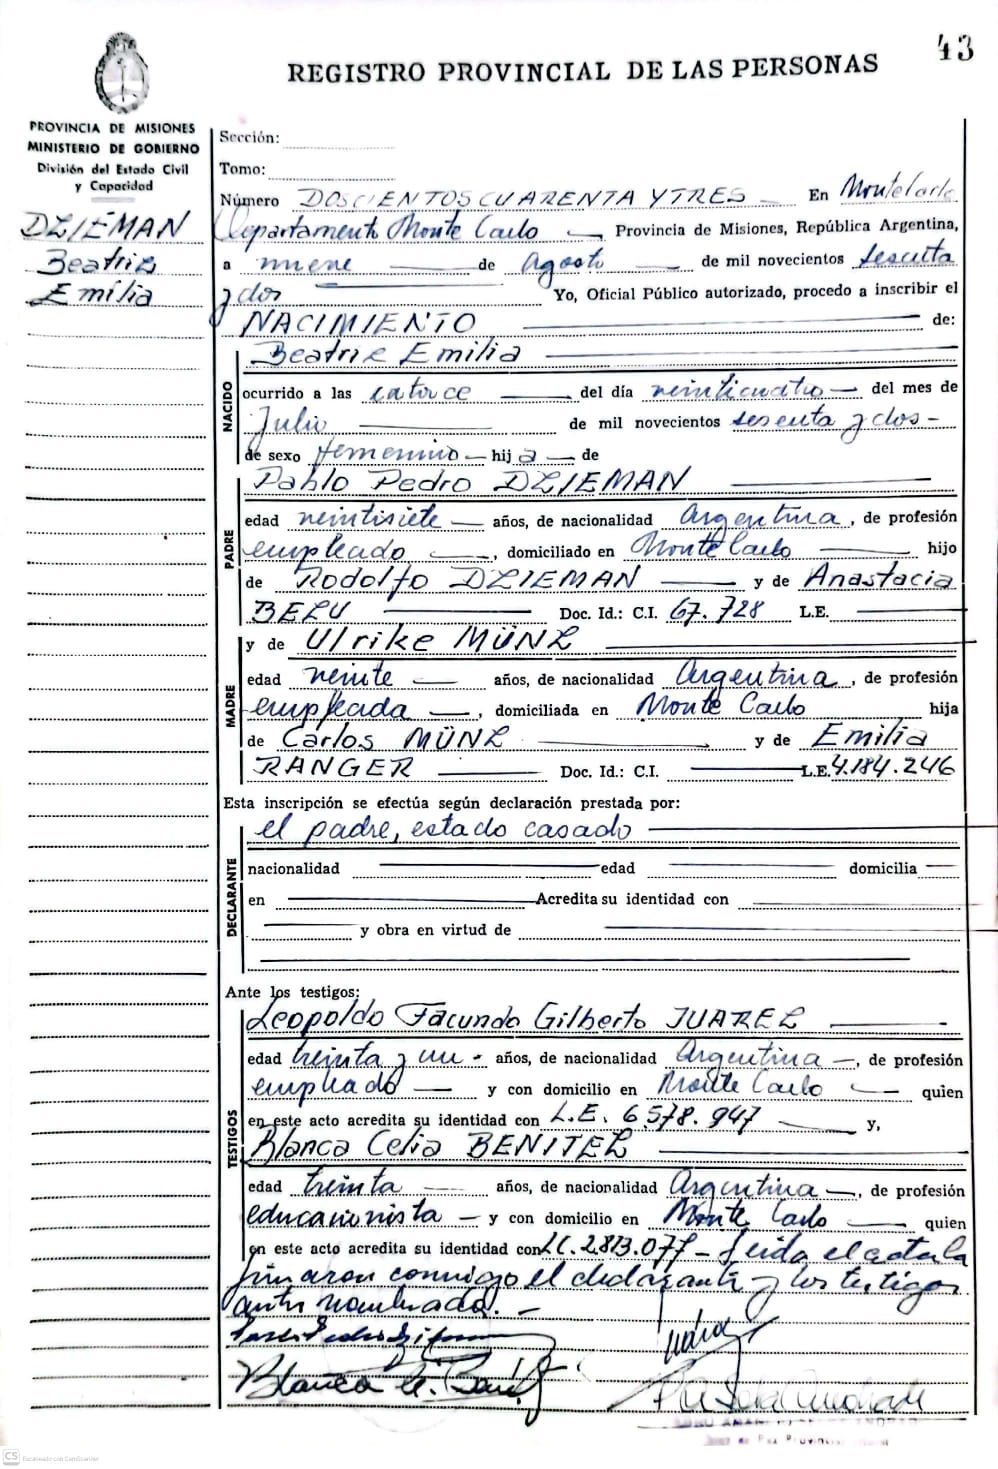 43
REGISTRO PROVINCIAL DE LAS PERSONAS
PROVINCIA DE MISIONES
MINISTERIO DE GOBIERNO
División del Estado Civil
y Capacidad
DZIEMAN
Beatriz
Emilia
Sección:
Tomo:
Número DOSCIENTOS CUARENTA Y TRES En Montecarlo
Departamento Monte Carlo Provincia de Misiones, República Argentina,
a nueve de agosto de mil novecientos sesenta
y dos Yo, Oficial Público autorizado, procedo a inscribir el
NACIMIENTO de:
NACIDO
Beatriz Emilia
ocurrido a las catorce del día veinticuatro del mes de
Julio de mil novecientos sesenta y dos
de sexo femenino hija de
PADRE
Pablo Pedro DZIEMAN
edad veintisiete años, de nacionalidad Argentina, de profesión
empleado, domiciliado en Monte Carlo hijo
de Rodolfo DZIEMAN y de Anastacia
BELU Doc. Id.: C.I. 67.728 L.E.
MADRE
y de Ulrike MÜNZ
edad veinte años, de nacionalidad Argentina, de profesión
empleada, domiciliada en Monte Carlo hija
de Carlos MÜNZ y de Emilia
RANGER Doc. Id.: C.I. L.E. 4.184.246
Esta inscripción se efectúa según declaración prestada por:
DECLARANTE
el padre, estado casado
nacionalidad edad domicilia
en Acredita su identidad con
y obra en virtud de
Ante los testigos:
TESTIGOS
Leopoldo Facundo Gilberto JUAREZ
edad treinta y un años, de nacionalidad Argentina, de profesión
empleado y con domicilio en Monte Carlo quien
en este acto acredita su identidad con L.E. 6.578.947 y,
Blanca Celia BENITEZ
edad treinta años, de nacionalidad Argentina, de profesión
educacionista y con domicilio en Monte Carlo quien
en este acto acredita su identidad con LC. 2.813.077 - Leida el acta la
firmaron conmigo el declarante y los testigos
antes nombrado.
CS Escaneado con CamScanner